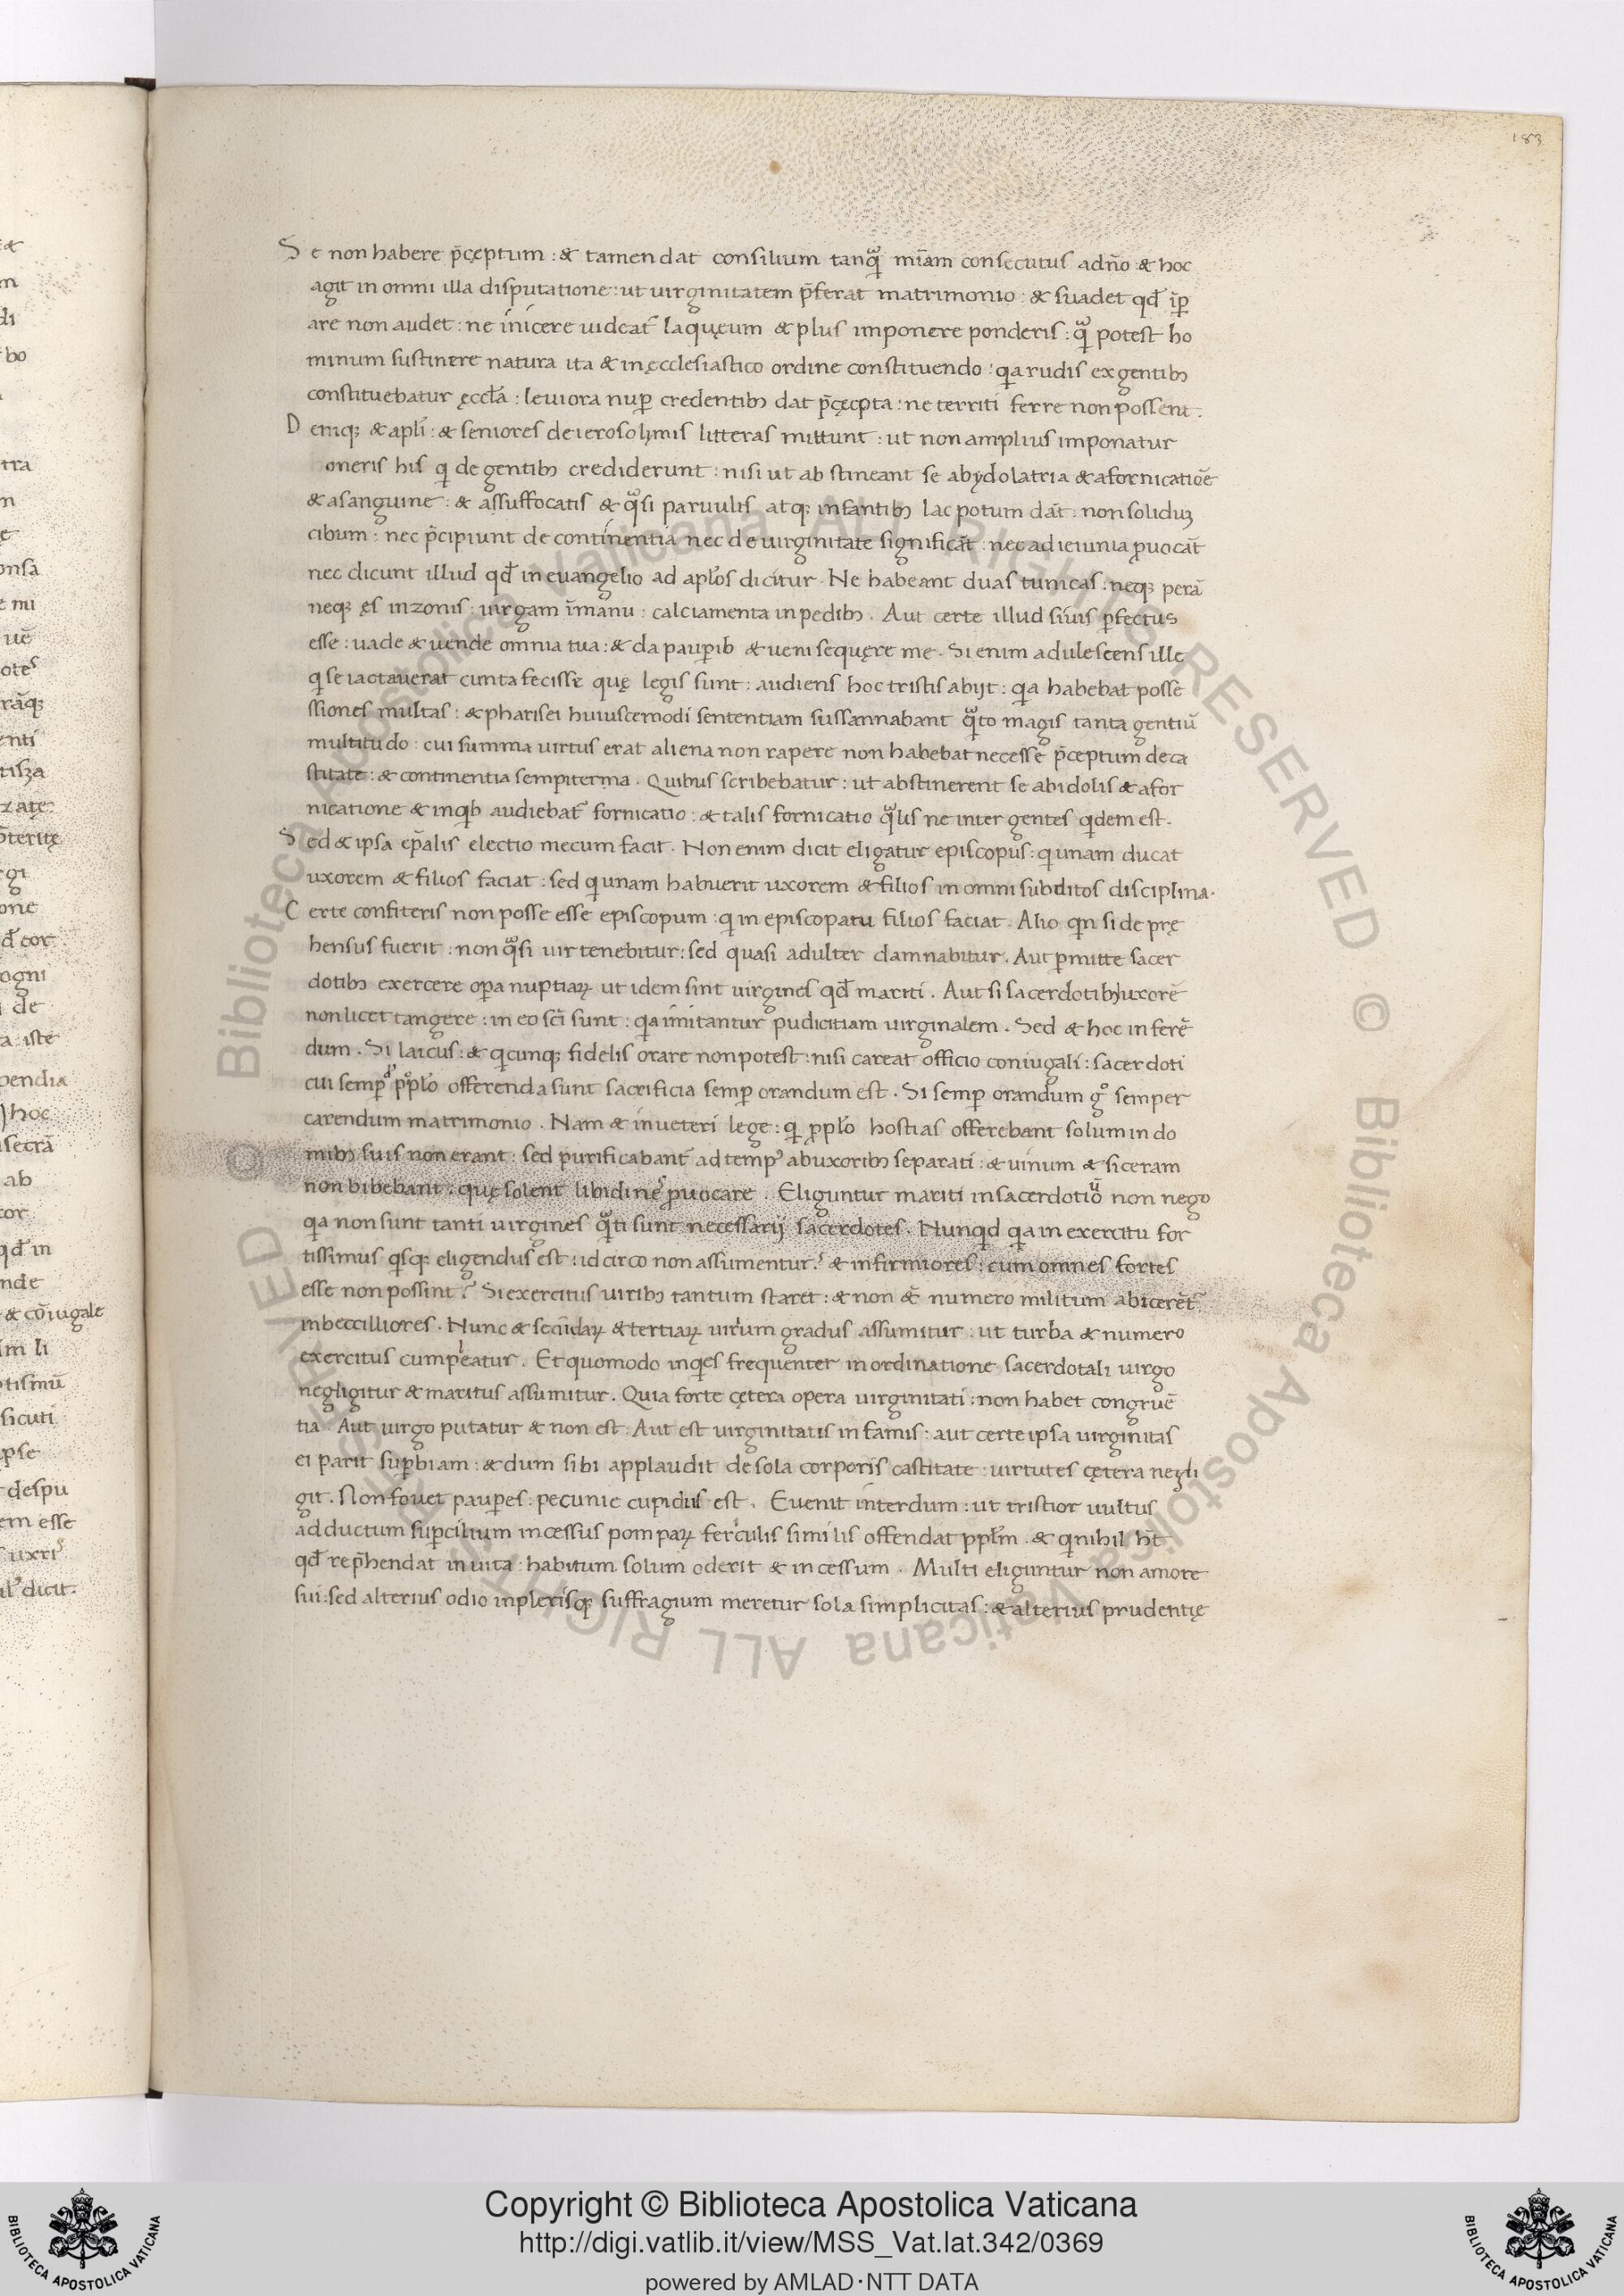 183
Se non habere p̄cęptum : & tamen dat consilium tanqͣ̃ mĩam consecutus adn̄o & hoc
agit in omni illa disputatione : ut uirginitatem p̄ferat matrimonio : & suadet qđ ĩꝑ
are non audet : ne inicere uideat᷑ laquęum & plus imponere ponderis : qͣ̃ potest ho
minum sustinere natura ita & in ęcclesiastico ordine constituendo : qa rudis ex gentibꝫ
constituebatur ęccła : leuiora nuꝑ credentibꝫ dat p̄cęcpta : ne territi ferre non possent .
Demqꝫ & apłi : & seniores de ierosolymis litteras mittunt : ut non amplius imponatur
oneris his q de gentibꝫ crediderunt : nisi ut abstineant se abydolatria & afornicatiōe
& asanguine : & assuffocatis & qͣsi paruulis atqꝫ infantibꝫ lac potum dāt : non solidūꝫ
cibum : nec p̄cipiunt de continentia nec de uirginitate significāt : nec ad ieiunia ꝓuocāt
nec dicunt illud qđ in euangelio ad apłos dicitur . Ne habeant duas tunicas : neqꝫ perā
neqꝫ ęs in zonis : uirgam ĩmanu : calciamenta in pedibꝫ . Aut certe illud siuis ꝑfectus
esse : uade & uende omnia tua : & da pauꝑib & ueni sequęre me . Si enim adulescens ille
q se iactauerat cunta fecisse quę legis sunt : audiens hoc tristis abijt : qa habebat posse
ssiones multas : & pharisei huiuscemodi sententiam sussannabant qͣto magis tanta gentiū
multitudo : cui summa uirtus erat aliena non rapere non habebat necesse p̄ceptum de ca
stitate : & continentia sempiterma . Quibus scribebatur : ut abstinerent se abidolis & afor
nicatione & inqib audiebat᷑ fornicatio : & talis fornicatio qͣlis ne inter gentes qidem est .
Sed & ipsa ep̄alis electio mecum facit . Non enim dicit eligatur episcopus : q unam ducat
uxorem & filios faciat : sed q unam habuerit uxorem & filios in omni subditos disciplina .
Certe confiteris non posse esse episcopum : q in episcopatu filios faciat . Alio qn si de prę
hensus fuerit : non qͣsi uir tenebitur : sed quasi adulter damnabitur . Aut ꝑmitte sacer
dotibꝫ exercere oꝑa nuptiaꝝ ut idem sint uirgines qđ mariti . Aut si sacerdotibꝫ uxorē
non licet tangere : in eo sc̄i sunt : qa imitantur pudicitiam uirginalem . Sed & hoc inferē
dum . Si laicus : & qcunqꝫ fidelis orare non potest : nisi careat officio coniugali : sacerdoti
cui semꝑ ꝓ ppło offerenda sunt sacrificia semꝑ orandum est . Si semꝑ orandum gͦ semper
carendum matrimonio . Nam & in ueteri lege : q ꝓpło hostias offerebant solum in do
mibꝫ suis non erant : sed purificabant᷑ ad temp᾽ abuxoribꝫ separati : & uinum & siceram
non bibebant : quę solent libidinē ꝓuocare . Eliguntur mariti insacerdotiū non nego
qa non sunt tanti uirgines qͣti sunt necessarij sacerdotes . Nunqd qa in exercitu for
tissimus qsqꝫ eligendus est : id circo non assumentur ? & infirmiores : cum omnes fortes
esse non possint ? Si exercitus uiribꝫ tantum staret : & non & numero militum abicerēt᷑
mbeccilliores . Nunc & secūdaꝝ & tertiaꝝ uirium gradus assumitur : ut turba & numero
exercitus cumpleatur . Et quomodo inqes frequenter in ordinatione sacerdotali uirgo
negligitur & maritus assumitur . Quia forte cętera opera uirginitati : non habet congruē
tia . Aut uirgo putatur & non est : Aut est uirginitatis infamis : aut certe ipsa uirginitas
ei parit suꝑbiam : & dum sibi applaudit de sola corporis castitate : uirtutes cętera negli
git . Non fouet pauꝑes : pecunie cupidus est . Euenit interdum : ut tristior uultus
adductum suꝑcilium incessus pompaꝝ ferculis similis offendat ppłm . & q nihil h̄t
qđ rep̄hendat in uita : habitum solum oderit & incessum . Multi eliguntur non amore
sui : sed alterius odio in plerisqꝫ suffragium meretur sola simplicitas : & alterius prudentię
Copyright © Biblioteca Apostolica Vaticana
http://digi.vatlib.it/view/MSS_Vat.lat.342/0369
powered by AMLAD·NTT DATA
BIBLIOTECA APOSTOLICA VATICANA
BIBLIOTECA APOSTOLICA VATICANA